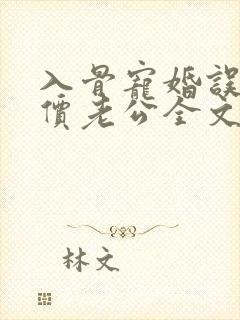 入骨寵婚誤
價老公全文
林文